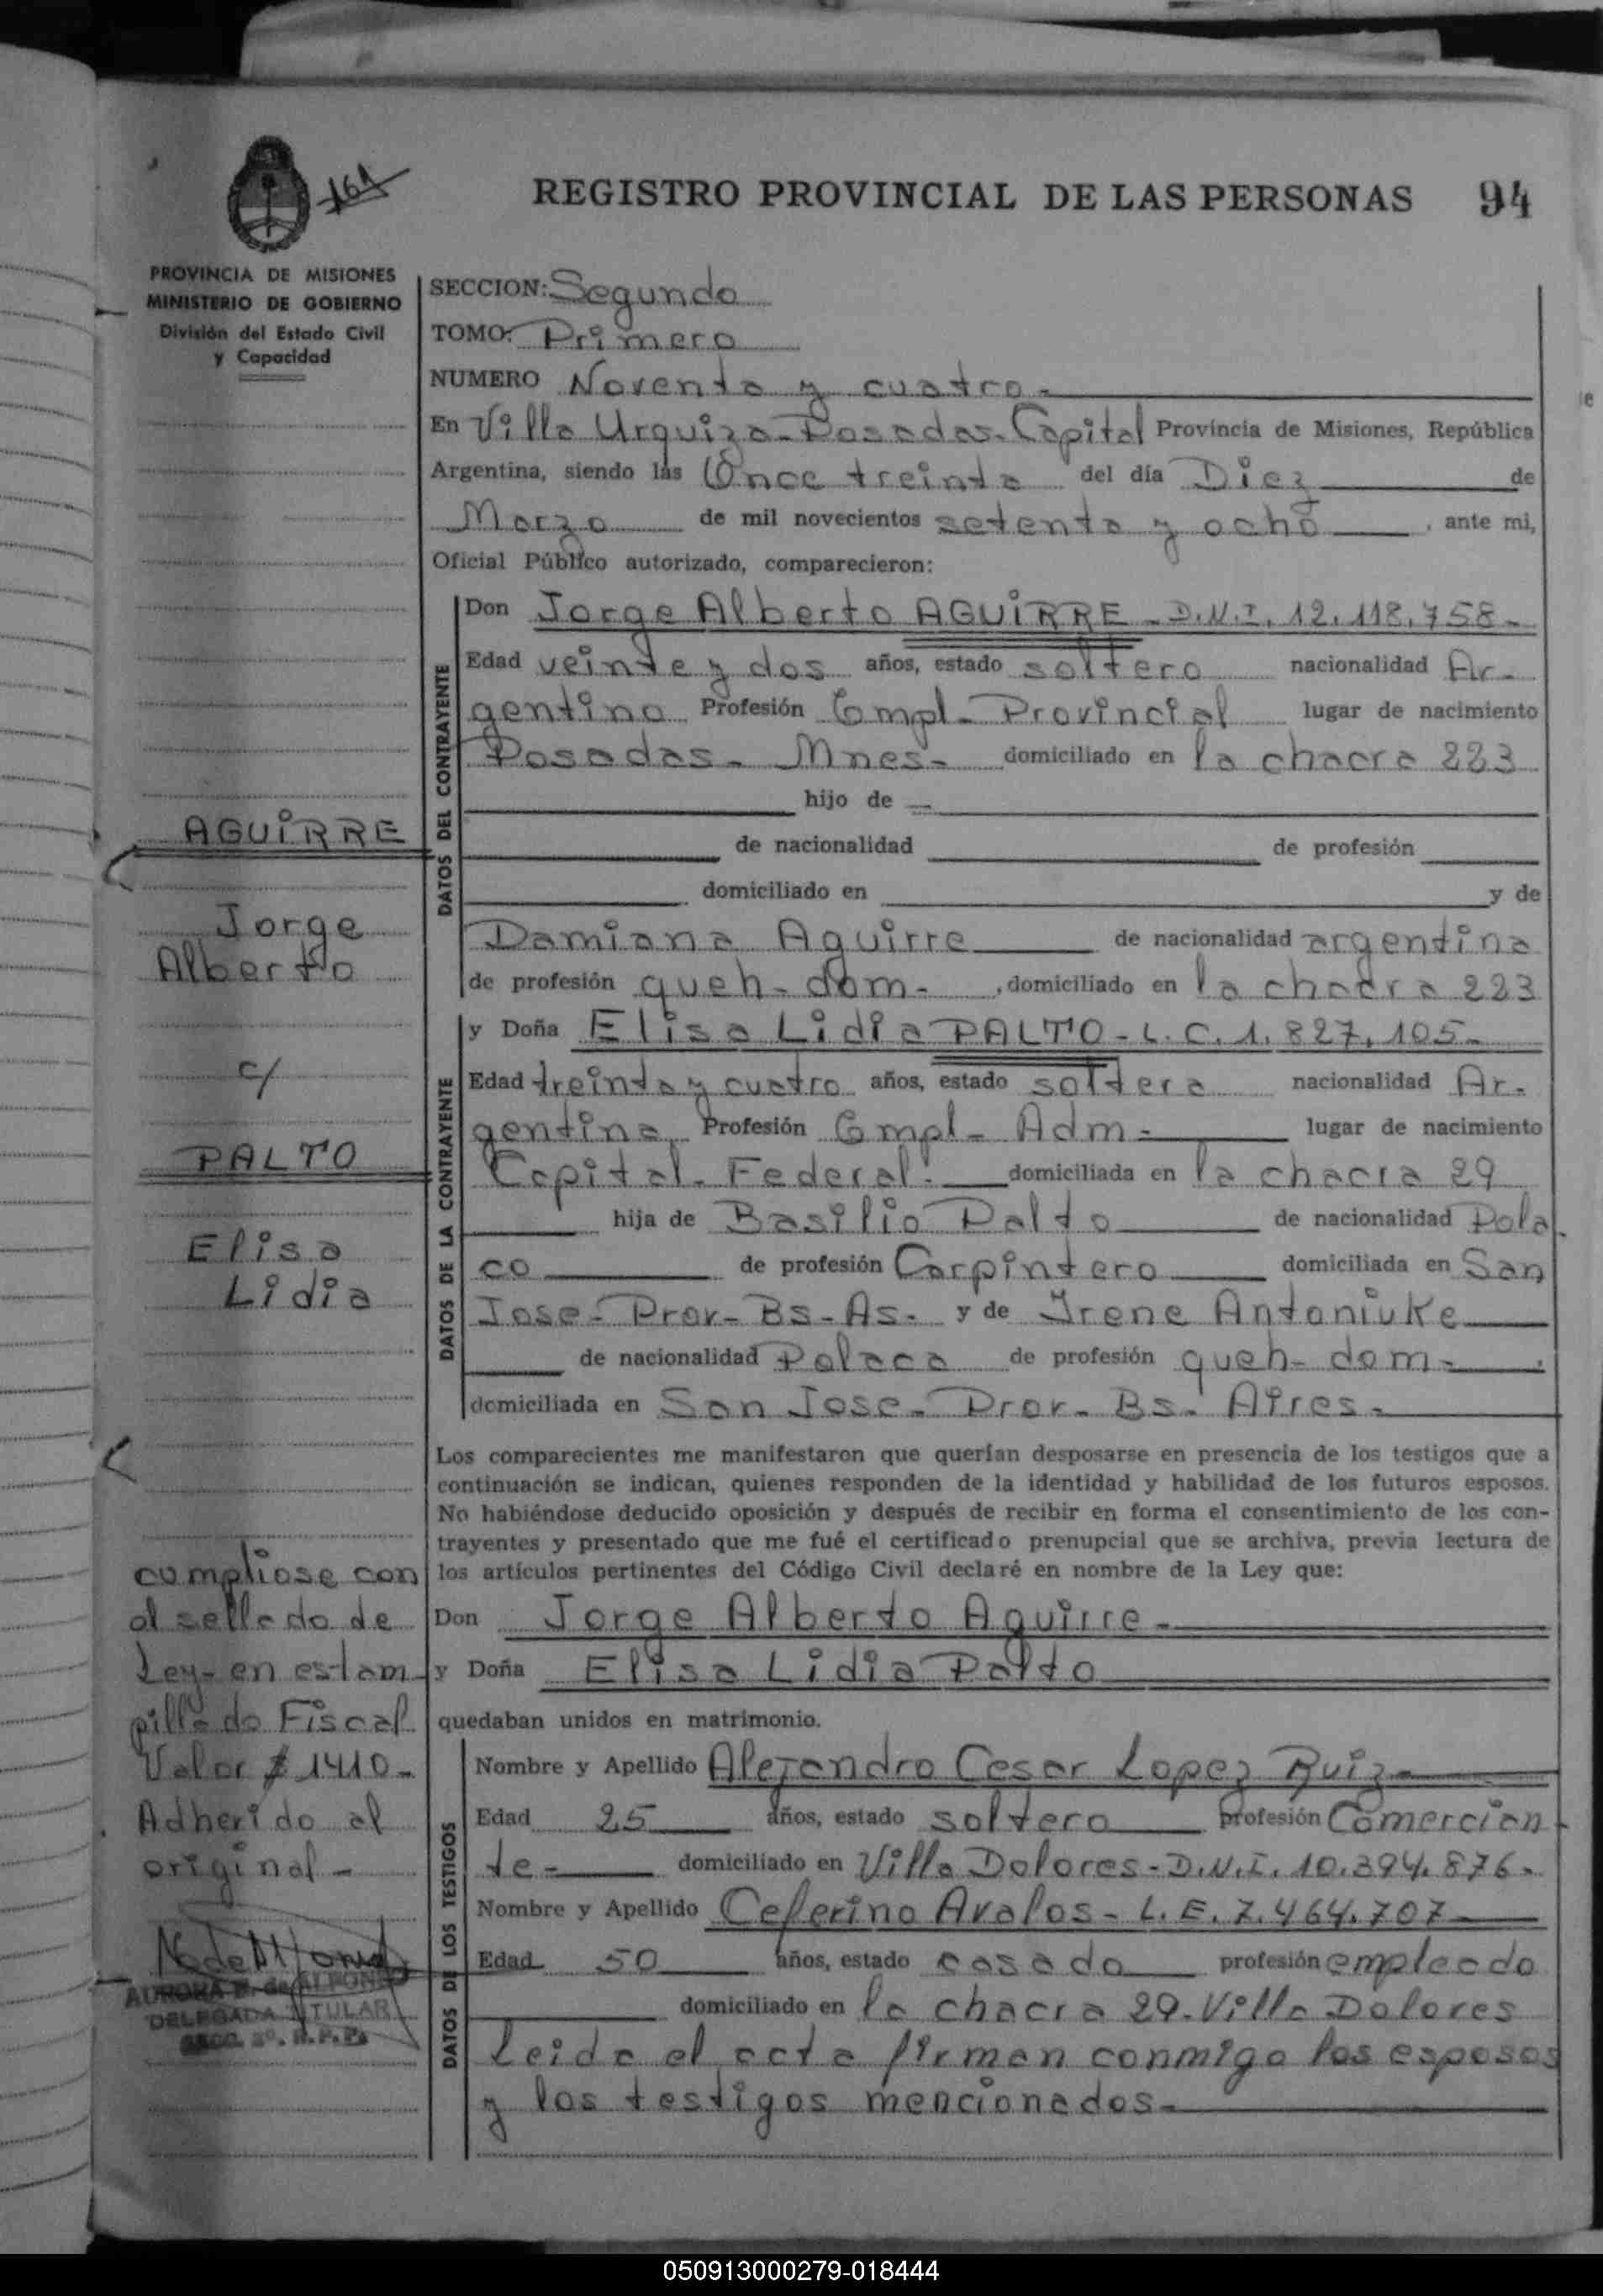 161
REGISTRO PROVINCIAL DE LAS PERSONAS 94
PROVINCIA DE MISIONES
MINISTERIO DE GOBIERNO
División del Estado Civil
y Capacidad
SECCION: Segunda
TOMO: Primero
NUMERO Noventa y cuatro -
En Villa Urquiza - Posadas - Capital Provincia de Misiones, República
Argentina, siendo las Once treinta del día Diez de
Marzo de mil novecientos setenta y ocho , ante mi,
Oficial Público autorizado, comparecieron:
DATOS DEL CONTRAYENTE
Don Jorge Alberto AGUIRRE - D.N.I. 12.118.758 -
Edad veinte y dos años, estado soltero nacionalidad Ar-
gentina Profesión Empl - Provincial lugar de nacimiento
Posadas - Mnes - domiciliado en la chacra 223
hijo de —
de nacionalidad de profesión
domiciliado en y de
Damiana Aguirre de nacionalidad argentina
de profesión queh - dom - , domiciliado en la chacra 223
DATOS DE LA CONTRAYENTE
y Doña Elisa Lidia PALTO - L.C. 1.827.105 -
Edad treinta y cuatro años, estado soltera nacionalidad Ar-
gentina Profesión Empl - Adm - lugar de nacimiento
Capital - Federal - domiciliada en la chacra 29
hija de Basilio Palto de nacionalidad Pola
co de profesión Carpintero domiciliada en San
Jose - Prov - Bs - As - y de Irene Antoniuke
de nacionalidad Polaca de profesión queh - dom - .
domiciliada en San Jose - Prov - Bs. Aires -
Los comparecientes me manifestaron que querían desposarse en presencia de los testigos que a
continuación se indican, quienes responden de la identidad y habilidad de los futuros esposos.
No habiéndose deducido oposición y después de recibir en forma el consentimiento de los con-
trayentes y presentado que me fué el certificado prenupcial que se archiva, previa lectura de
los artículos pertinentes del Código Civil declaré en nombre de la Ley que:
Don Jorge Alberto Aguirre -
y Doña Elisa Lidia Palto
quedaban unidos en matrimonio.
DATOS DE LOS TESTIGOS
Nombre y Apellido Alejandro Cesar Lopez Ruiz -
Edad 25 años, estado soltero profesión Comercian
te - domiciliado en Villa Dolores - D.N.I. 10.394.876 -
Nombre y Apellido Ceferino Avalos - L.E. 7.464.707
Edad 50 años, estado casado profesión empleado
domiciliado en la chacra 29 - Villa Dolores
Leida el acta firman conmigo los esposos
y los testigos mencionados -
AGUIRRE
Jorge
Alberto
c/
PALTO
Elisa
Lidia
cumpliose con
el sellado de
Ley - en estam
pillado Fiscal
Valor $ 1410 -
Adherido al
original -
AURORA de ALFONSO
DELEGADA TITULAR
SECC. 2º. R.P.P.
050913000279-018444